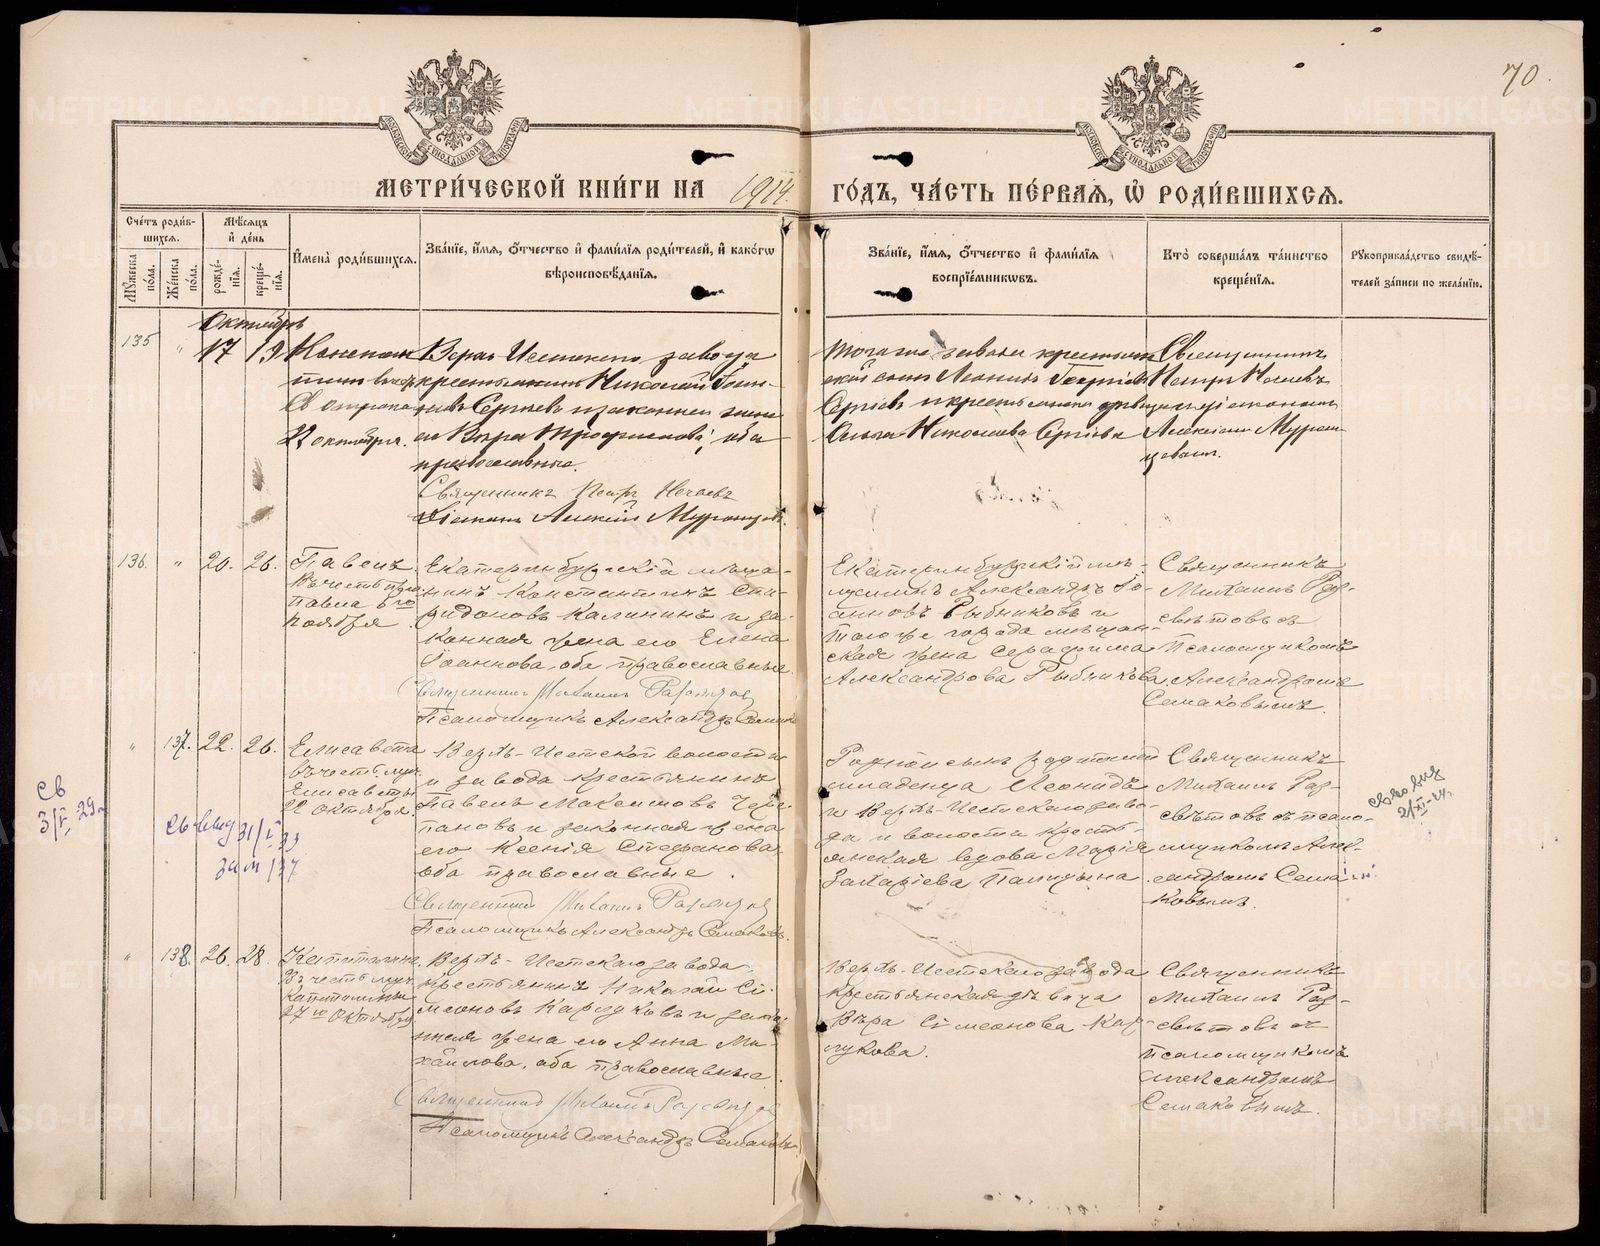 70.
МЕТРИ́ЧЕСКОЙ КНИ́ГИ НА 1914. ГО́ДЪ, ЧА́СТЬ ПЕ́РВАЯ, Ѡ҆ РОДИ́ВШИХСЯ.
Сче́тъ роди́вшихся.
Мꙋ́жеска по́ла.
Же́нска по́ла.
Мѣ́сяцъ и҆ де́нь
рожде́нїя.
креще́нїя.
И҆мена̀ роди́вшихся.
Зва́нїе, и҆́мя, ѻ҆́тчество и҆ фами́лїя роди́телей, и҆ како́гѡ
вѣроисповѣ́данїя.
Зва́нїе, и҆́мя, ѻ҆́тчество и҆ фами́лїя
воспрїе́мниковъ.
Кто̀ соверша́лъ та́инство
креще́нїя.
Рꙋкоприкла́дство свидѣ́-
телей за́писи по жела́нїю.
Октябрь
135 " 17 19
22 октября.
Верхъ Исетскаго завода
крестьянинъ Николай Іоан-
новъ Сергѣевъ и законная жена
его Вѣра Трофимова, оба
православные.
Священникъ Петръ Нечаевъ
Діаконъ Алексѣй Мурашовъ.
Того же завода крестьян-
скій сынъ Леонидъ Георгіевъ
Сергѣевъ и крестьянская дѣвица
Ольга Николаева Сергѣева
Священникъ
Петръ Нечаевъ
съ діакономъ
Алексѣемъ
136. " 20. 26. Павелъ
въ честь
Павла 6го
ноября
Екатеринбургскій мѣща-
нинъ Константинъ Спи-
ридоновъ Калининъ и за-
конная жена его Елена
Іоаннова, оба православные.
Священникъ Михаилъ
Псаломщикъ Александръ Семаковъ
Екатеринбургскій мѣ-
щанинъ Александръ Іо-
анновъ Рыбниковъ и
того же города мѣщан-
ская жена Серафима
Александрова Рыбникова
Священникъ
Михаилъ Раз-
свѣтовъ съ
Псаломщикомъ
Александромъ
Семаковымъ.
" 137. 22. 26. Елисавета
въ честь муч.
Елисаветы
22 октября.
Верхъ-Исетской волости
и завода крестьянинъ
Павелъ Максимовъ Чере-
пановъ и законная жена
его Ксенія Стефанова
оба православные.
Священникъ Михаилъ
Псаломщикъ Александръ Семаковъ.
Родной сынъ родителей
младенца Леонидъ
и Верхъ-Исетскаго заво-
да и волости кресть-
янская вдова Марія
Захаріева
Священникъ
Михаилъ Раз-
свѣтовъ съ псало-
мщикомъ Алек-
сандромъ Сема-
ковымъ.
Св
3/V 29г
31/V 33
зам 137
" 138. 26. 28. Капитолина
въ честь муч.
Капитолины
27го октября
Верхъ-Исетскаго завода
крестьянинъ Николай Сѵ-
меоновъ и закон-
ная жена его Анна Ми-
хайлова, оба православные.
Священникъ Михаилъ
Псаломщикъ Александръ Семаковъ
Верхъ-Исетскаго завода
крестьянская дѣвица
Вѣра Сѵмеонова
Священникъ
Михаилъ Раз-
свѣтовъ съ
псаломщикомъ
Александромъ
Семаковымъ.